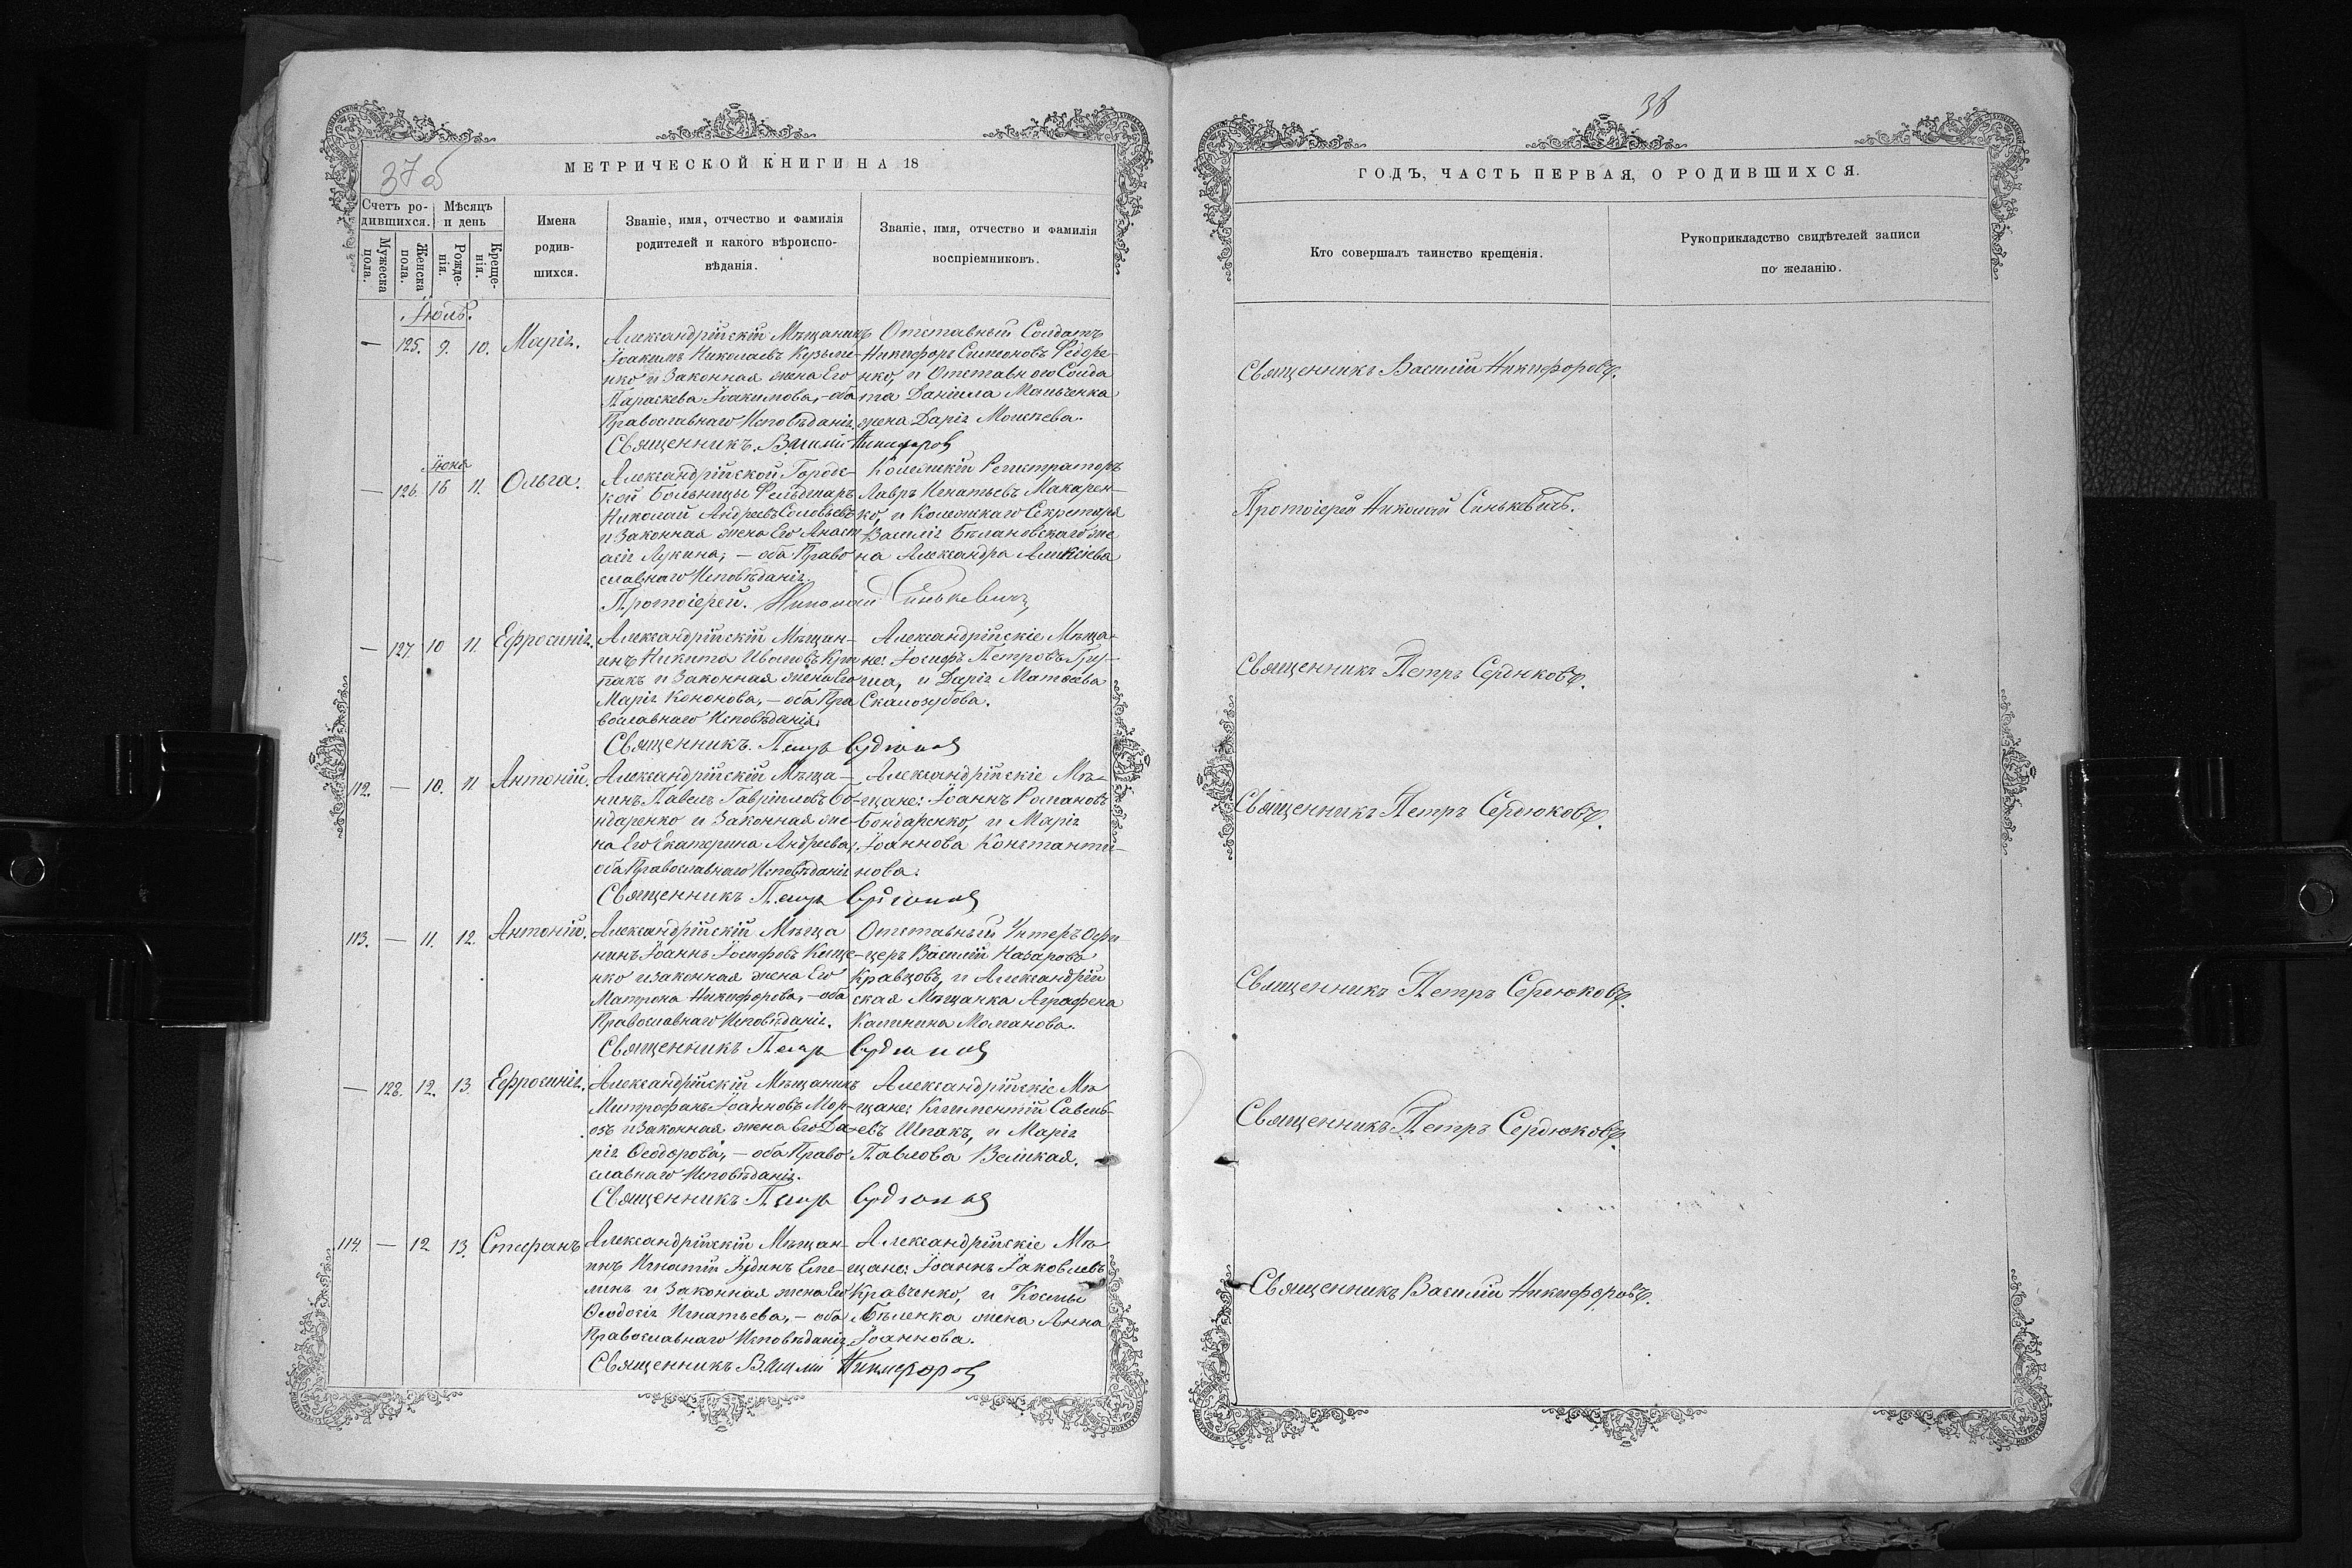 37 об
МЕТРИЧЕСКОЙ КНИГИ НА 18
Счетъ ро-
дившихся.
Мужеска
пола.
Женска
пола.
Мѣсяцъ
и день
Рожде-
нія.
Креще-
нія.
Имена
родив-
шихся.
Званіе, имя, отчество и фамилія
родителей и какого вѣроиспо-
вѣданія.
Званіе, имя, отчество и фамилія
воспріемниковъ.
Іюль.
— 125. 9. 10. Марія.
Александрійскій Мѣщанинъ
Іоакимъ Николаевъ Кузьме-
нко и Законная жена Его
Параскева Іоакимова, - оба
Православнаго Исповѣданія.
Отставный Солдатъ
Никифоръ Симеоновъ Федоре-
нко, и Отставного Солда
та Даніила Матченка
жена Дарія Моисѣева.
Священникъ. Василій Никифоров
Іюня
— 126. 18 11. Ольга.
Александрійской Городс-
кой Больницы Фельдшаръ
Николай Андреевъ Соловьевъ
и Законная жена Его Анаст
асія Лукина; — оба Право
славнаго Исповѣданія.
Колежскій Регистраторъ
Лавръ Игнатьевъ Макарен-
ко, и Колежскаго Секретаря
Василія Бѣлановскаго же
на Александра Алексіева
Протоіерей. Николай Синькевичъ
— 127. 10 11. Ефросинія.
Александрійскій Мѣщан-
инъ Никита Ивановъ Кри
пакъ и Законная жена Его
Марія Кононова, — оба Пра
вославнаго Исповѣданія.
Александрійскіе Мѣща-
не: Іосифъ Петровъ Гру-
ша, и Дарія Матѳеева
Скалозубова.
Священникъ. Петръ Сердюков
112. — 10. 11 Антоній.
Александрійскій Мѣща-
нинъ Павелъ Гавріиловъ Бо-
ндаренко и Законная же-
на Его Екатерина Андреева,
оба Православнаго Исповѣданія
Александрійскіе Мѣ-
щане: Іоаннъ Романовъ
Бондаренко, и Марія
Іоаннова Константи-
нова.
Священникъ Петръ Сердюков
113. — 11. 12. Антоній.
Александрійскій Мѣща
нинъ Іоаннъ Іосифовъ Кище-
нко и законная жена Его
Матрона Никифорова, — оба
Православнаго Исповѣданія.
Отставный Унтеръ Офи-
церъ Василій Назаровъ
Кравцовъ, и Александрій
ская Мѣщанка Аграфена
Калинина Моманова.
Священникъ Петръ Сердюков
— 128. 12. 13. Ефросинія.
Александрійскій Мѣщанинъ
Митрофанъ Іоанновъ Мор-
озъ и Законная жена Его Да-
рія Ѳеодорова, — оба Право
славнаго Исповѣданія.
Александрійскіе Мѣ
щане: Климентій Савель-
евъ Шпакъ, и Марія
Павлова Великая.
Священникъ Петръ Сердюков
114. — 12 13. Стефанъ
Александрійскій Мѣщан-
инъ Игнатій Іудинъ Еме-
линъ и Законная жена Его
Ѳеодосія Игнатьева, — оба
Православнаго Исповѣданія
Александрійскіе Мѣ
щане: Іоаннъ Іаковлевъ
Кравченко, и Космы
Бѣленка жена Анна
Іоаннова.
Священникъ Василій Никифоров
38
ГОДЪ, ЧАСТЬ ПЕРВАЯ, О РОДИВШИХСЯ.
Кто совершалъ таинство крещенія.
Рукоприкладство свидѣтелей записи
по желанію.
Священникъ Василій Никифоровъ.
Протоіерей Николай Синькевичъ.
Священникъ Петръ Сердюковъ.
Священникъ Петръ Сердюковъ.
Священникъ Петръ Сердюковъ.
Священникъ Петръ Сердюковъ.
Священникъ Василій Никифоровъ.